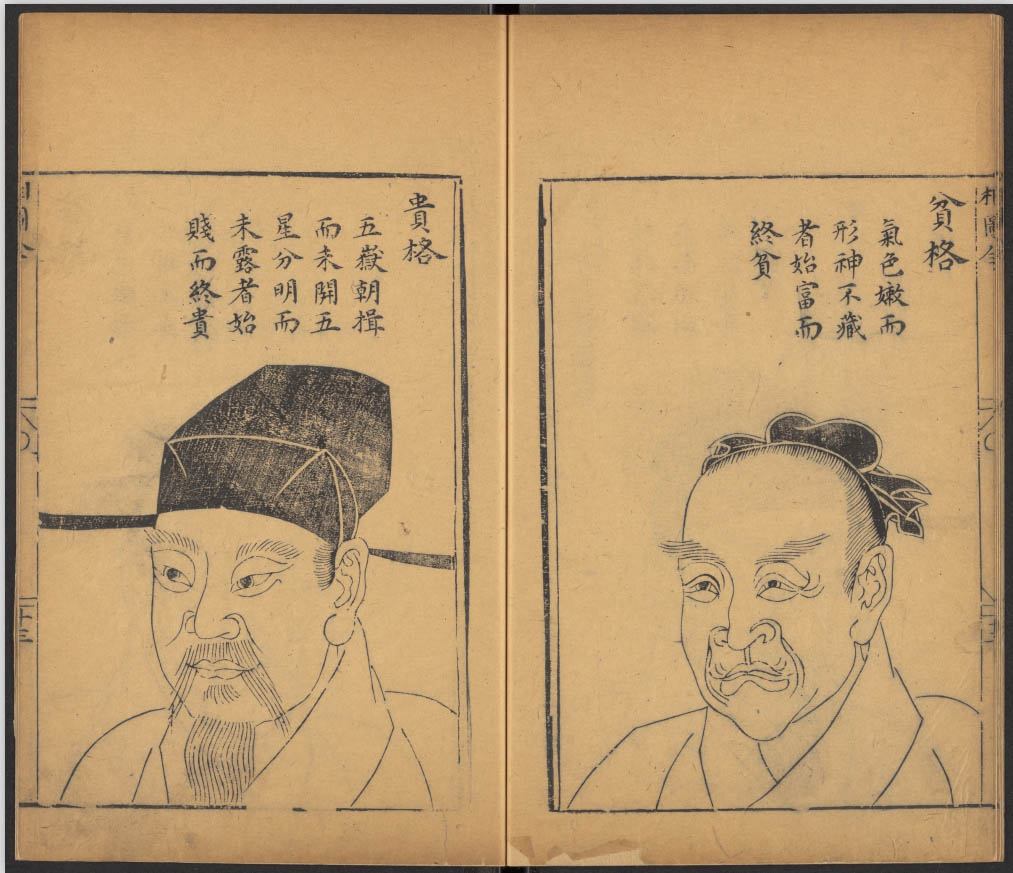 貧格
氣色嫩而
形神不藏
者始富而
終貧
貴格
五嶽朝揖
而未開五
星分明而
未露者始
賤而終貴